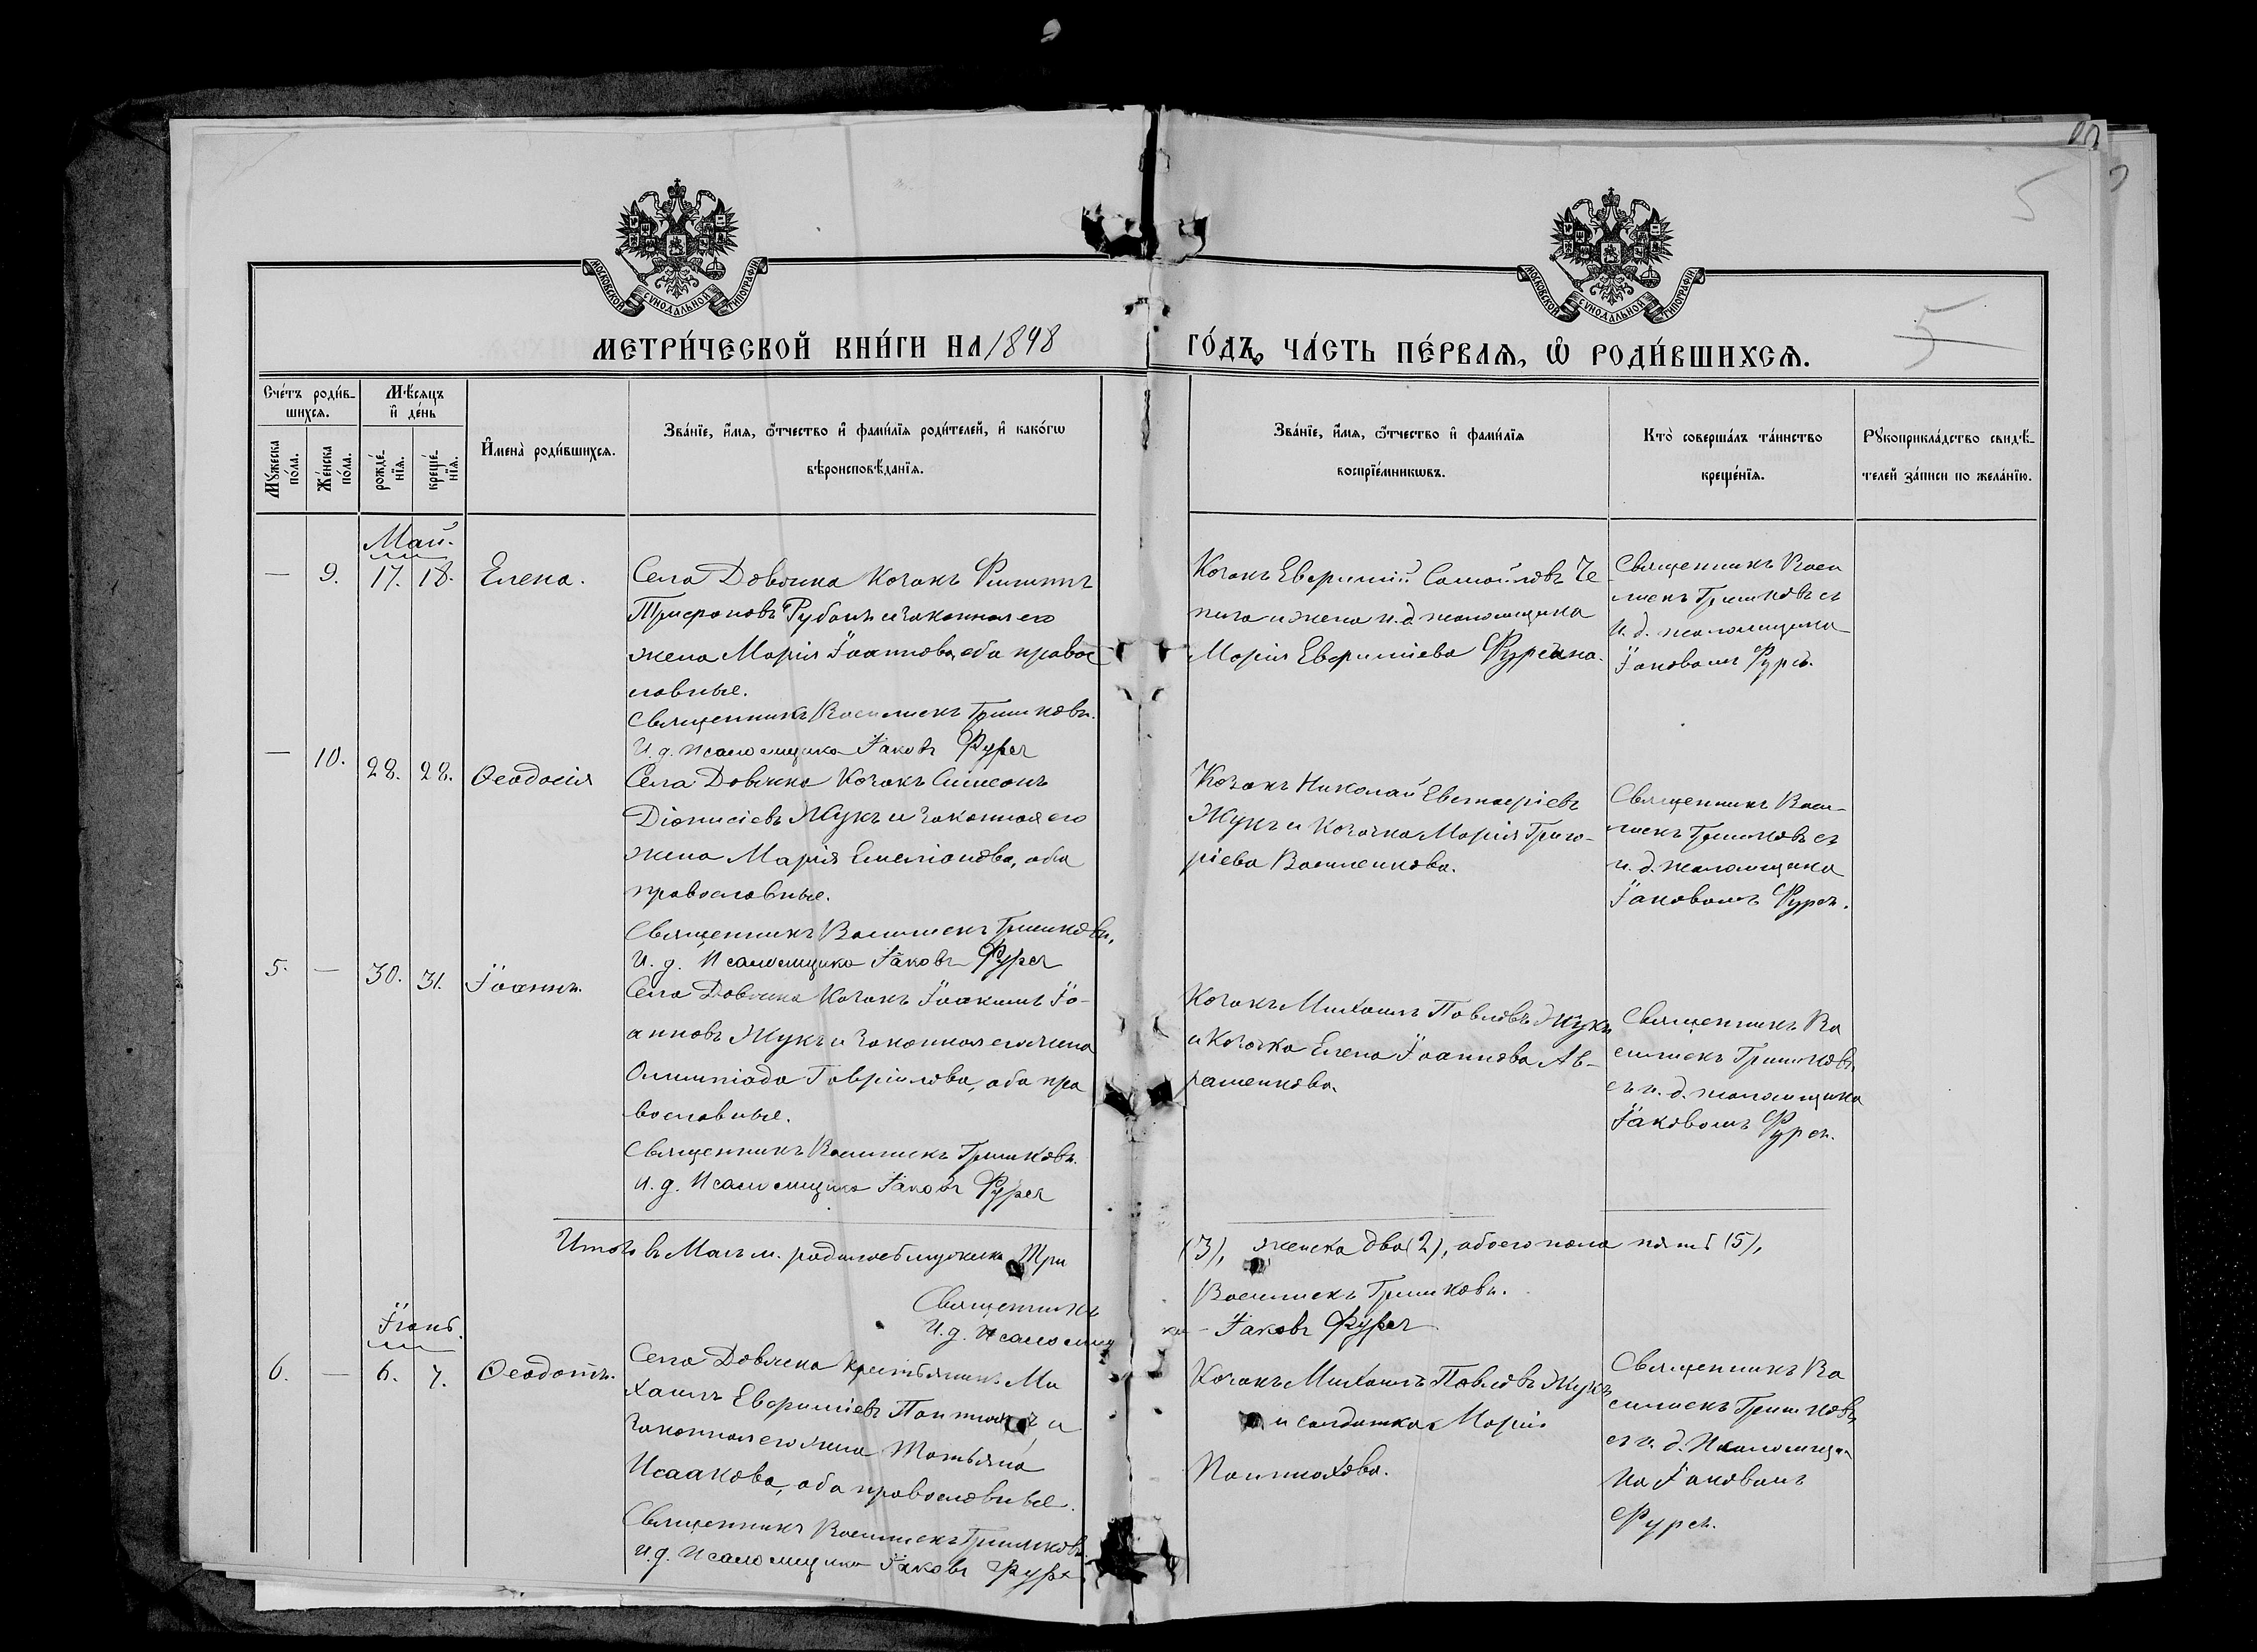 5
МОСКОВСКОЙ СѴНОДАЛЬНОЙ ТИПОГРАФІИ
МОСКОВСКОЙ СѴНОДАЛЬНОЙ ТИПОГРАФІИ
МЕТРИ́ЧЕСКОЙ КНИ́ГИ НА 1898
ГО́ДЪ, ЧА́СТЬ ПЕ́РВАЯ, Ѿ РОДИ́ВШИХСѦ.
5
Сче́тъ роди́вшихсѧ.
Мѣ́сѧцъ и҆ де́нь
Мꙋ́жеска по́ла.
Же́нска по́ла.
рожде́нїѧ.
креще́нїѧ.
И҆мена̀ роди́вшихсѧ.
Зва́нїе, и҆́мѧ, ѻ҆́тчество и҆ фами́лїѧ роди́телей, и҆ како́гѡ
вѣроисповѣ́данїѧ.
Зва́нїе, и҆́мѧ, ѻ҆́тчество и҆ фами́лїѧ
воспрїе́мникѡвъ.
Кто̀ соверша́лъ та́инство
креще́нїѧ.
Рꙋкоприкла́дство свидѣ́-
телей за́писи по жела́нїю.
Май.
— 9. 17. 18. Елена.
Села Довжика козакъ Филиппъ
Трифоновъ Рубанъ и законная его
жена Марія Іоаннова, оба правос
лавные.
Священникъ Василискъ Гришковъ.
И. д. псаломщика Іаковъ Фурса
Козакъ Евфимій Самойловъ Че
пига и жена и. д. псаломщика
Марія Евфиміева Фурсина.
Священникъ Васи
лискъ Гришковъ съ
и. д. псаломщика
Іаковомъ Фурс.
— 10. 28. 28. Ѳеодосія
Села Довжика козакъ Симеонъ
Діонисіевъ Жукъ и законная его
жена Марія Емеліанова, оба
православные.
Священникъ Василискъ Гришковъ.
И. д. Псаломщика Іаковъ Фурса
Козакъ Николай Евстафіевъ
Жукъ и козачка Марія Григо-
ріева Василенкова.
Священникъ Васи-
лискъ Гришковъ съ
и. д. псаломщика
Іаковомъ Фурс.
5. — 30. 31. Іоаннъ.
Села Довжика козакъ Іоакимъ Іо-
анновъ Жукъ и законная его жена
Олимпіада Гавріилова, оба пра
вославные.
Священникъ Василискъ Гришковъ.
И. д. Псаломщика Іаковъ Фурса
Козакъ Михаилъ Павловъ Жукъ
и козачка Елена Іоаннова Ав-
раменкова.
Священникъ Ва
силискъ Гришковъ
съ и. д. псаломщика
Іаковомъ Фурс.
Итого въ Маѣ м. родилось мужеска три
(3), женска два (2), обоего пола пять (5),
Священникъ
Василискъ Гришковъ.
И. д. Псаломщи
ка - Іаковъ Фурса
Іюнь.
6. — 6. 7. Ѳеодотъ.
Села Довжика крестьянинъ Ми
хаилъ Евфиміевъ и
законная его жена Татьяна
Исаакова, оба православные.
Священникъ Василискъ Гришковъ.
И. д. Псаломщика Іаковъ Фурса
Козакъ Михаилъ Павловъ Жукъ
и солдатка Марія
Пантюхова.
Священникъ Ва
силискъ Гришковъ
съ и. д. Псаломщи
ка Іаковомъ
Фурс.